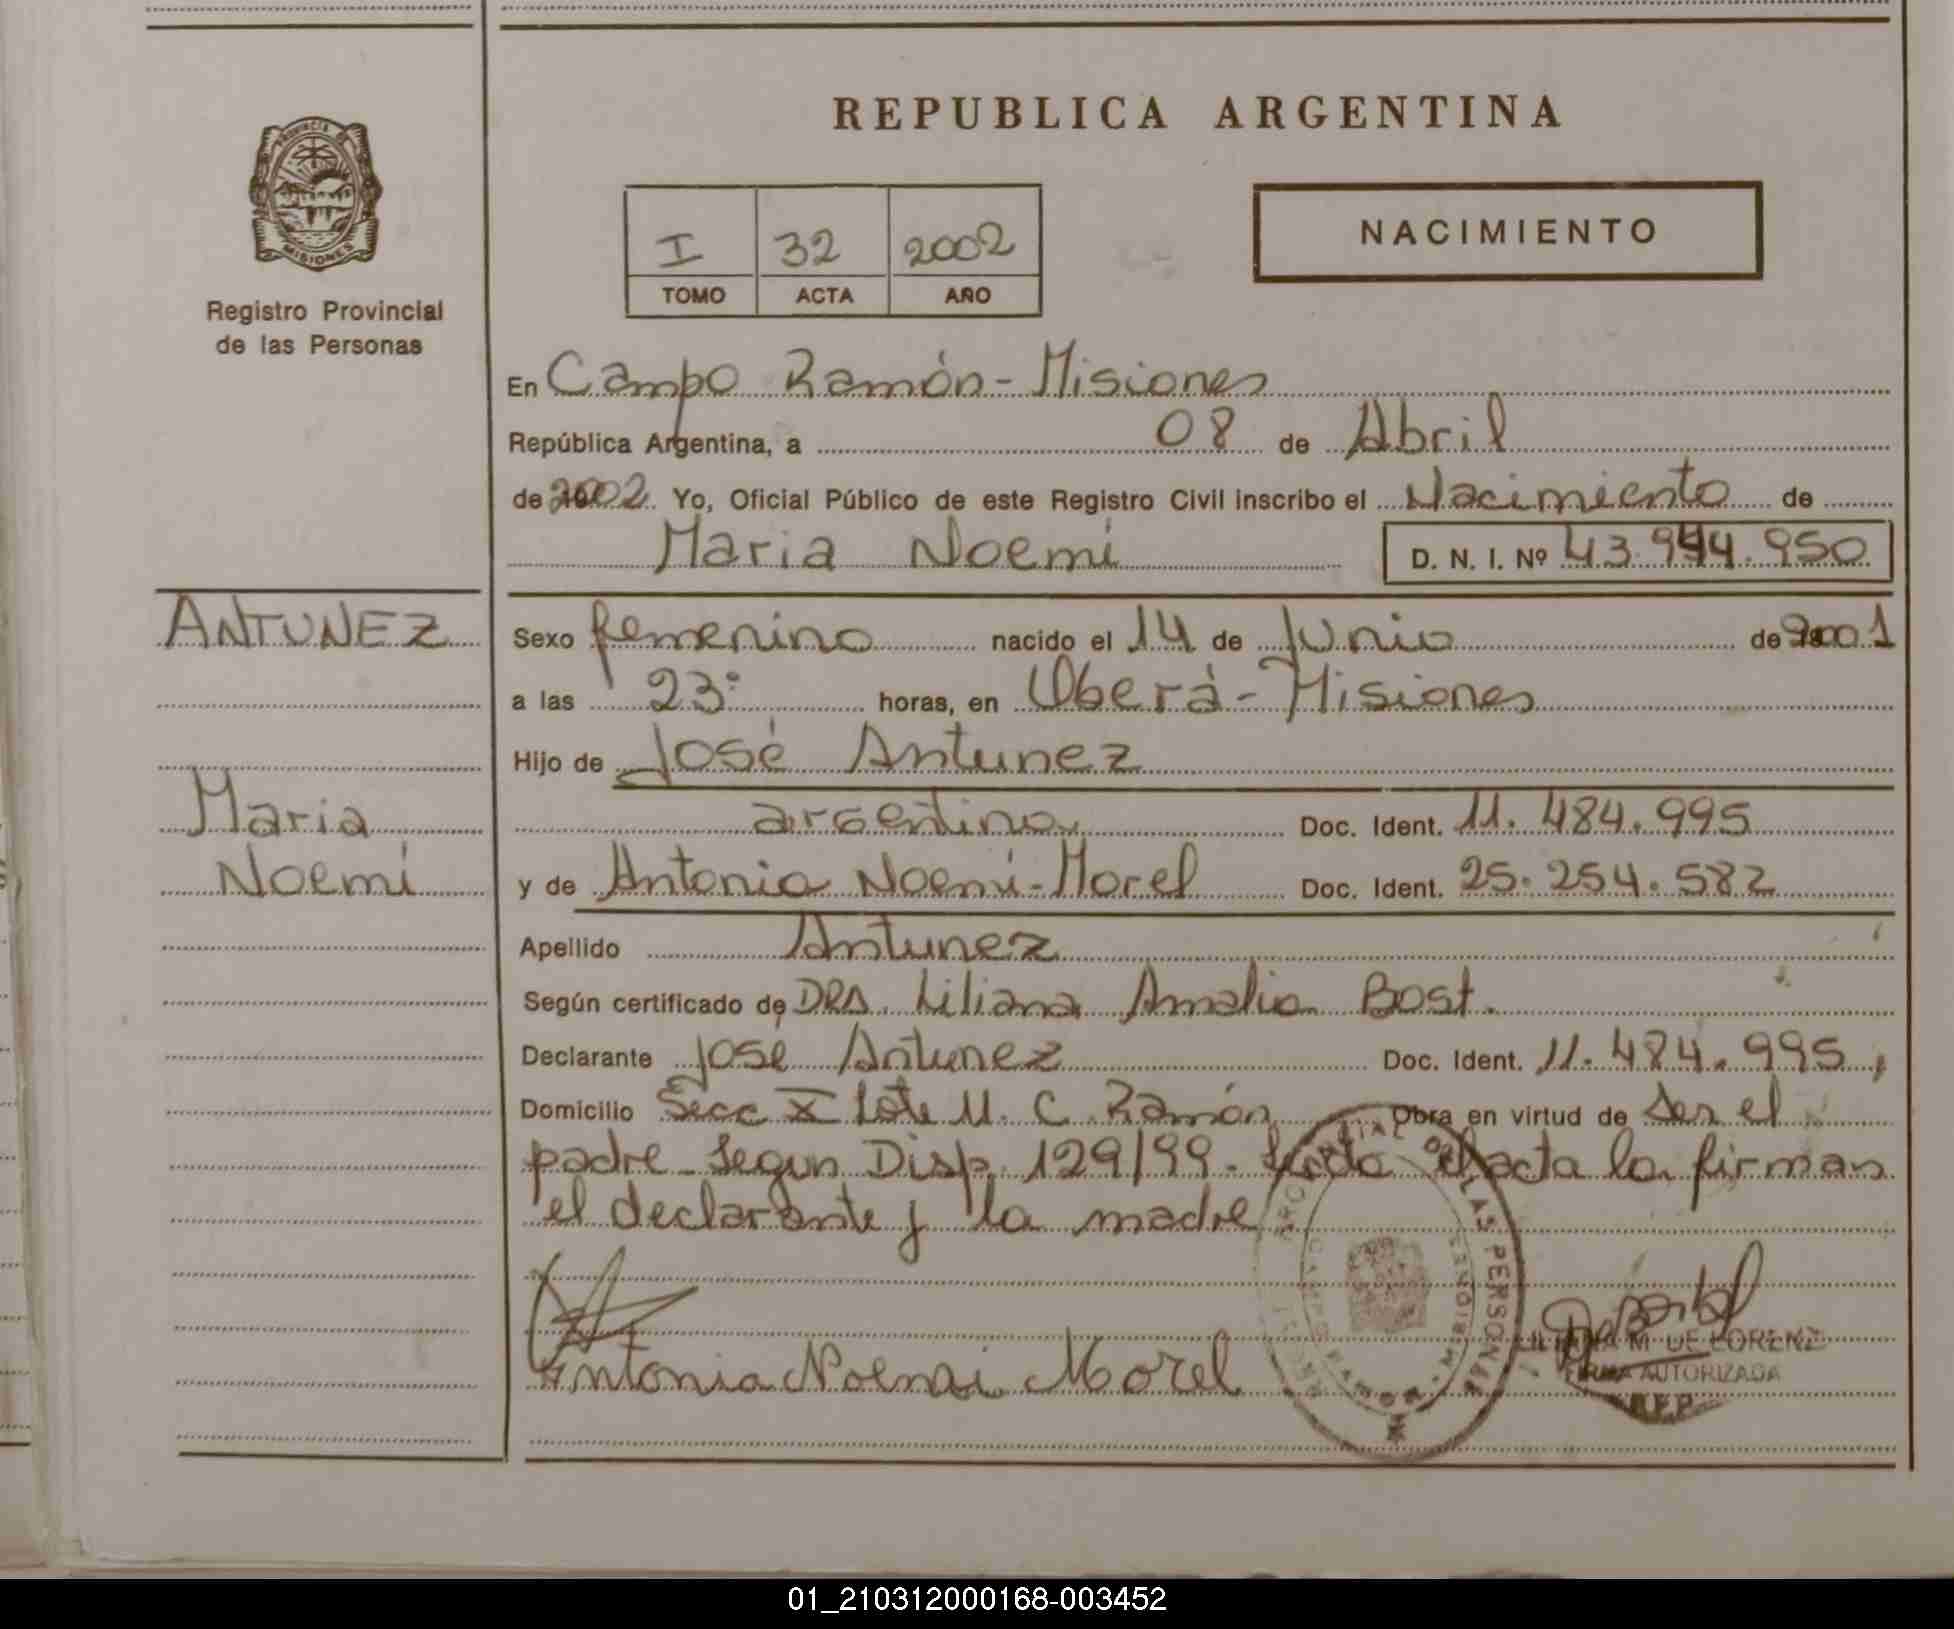 REPUBLICA ARGENTINA
PROVINCIA DE
MISIONES
Registro Provincial
de las Personas
I 32 2002
TOMO ACTA AÑO
NACIMIENTO
En Campo Ramón - Misiones
República Argentina, a 08 de Abril
de 2002 Yo, Oficial Público de este Registro Civil inscribo el Nacimiento de
Maria Noemí D. N. I. Nº 43.944.950
ANTUNEZ
Maria
Noemí
Sexo femenino nacido el 14 de Junio de 2001
a las 23: horas, en Oberá - Misiones
Hijo de José Antunez
argentino Doc. Ident. 11.484.995
y de Antonia Noemí Morel Doc. Ident. 25.254.582
Apellido Antunez
Según certificado de DRA. Liliana Amalia Bost.
Declarante José Antunez Doc. Ident. 11.484.995,
Domicilio Secc X Lote 11. C. Ramón Obra en virtud de ser el
padre - Segun Disp. 129/99. el acta la firman
el declarante y la madre
Antonia Noemi Morel
PROVINCIAL DE LAS PERSONAS
CAMPO RAMON - MISIONES
LILIANA M. DE LORENZ
FIRMA AUTORIZADA
01_210312000168-003452